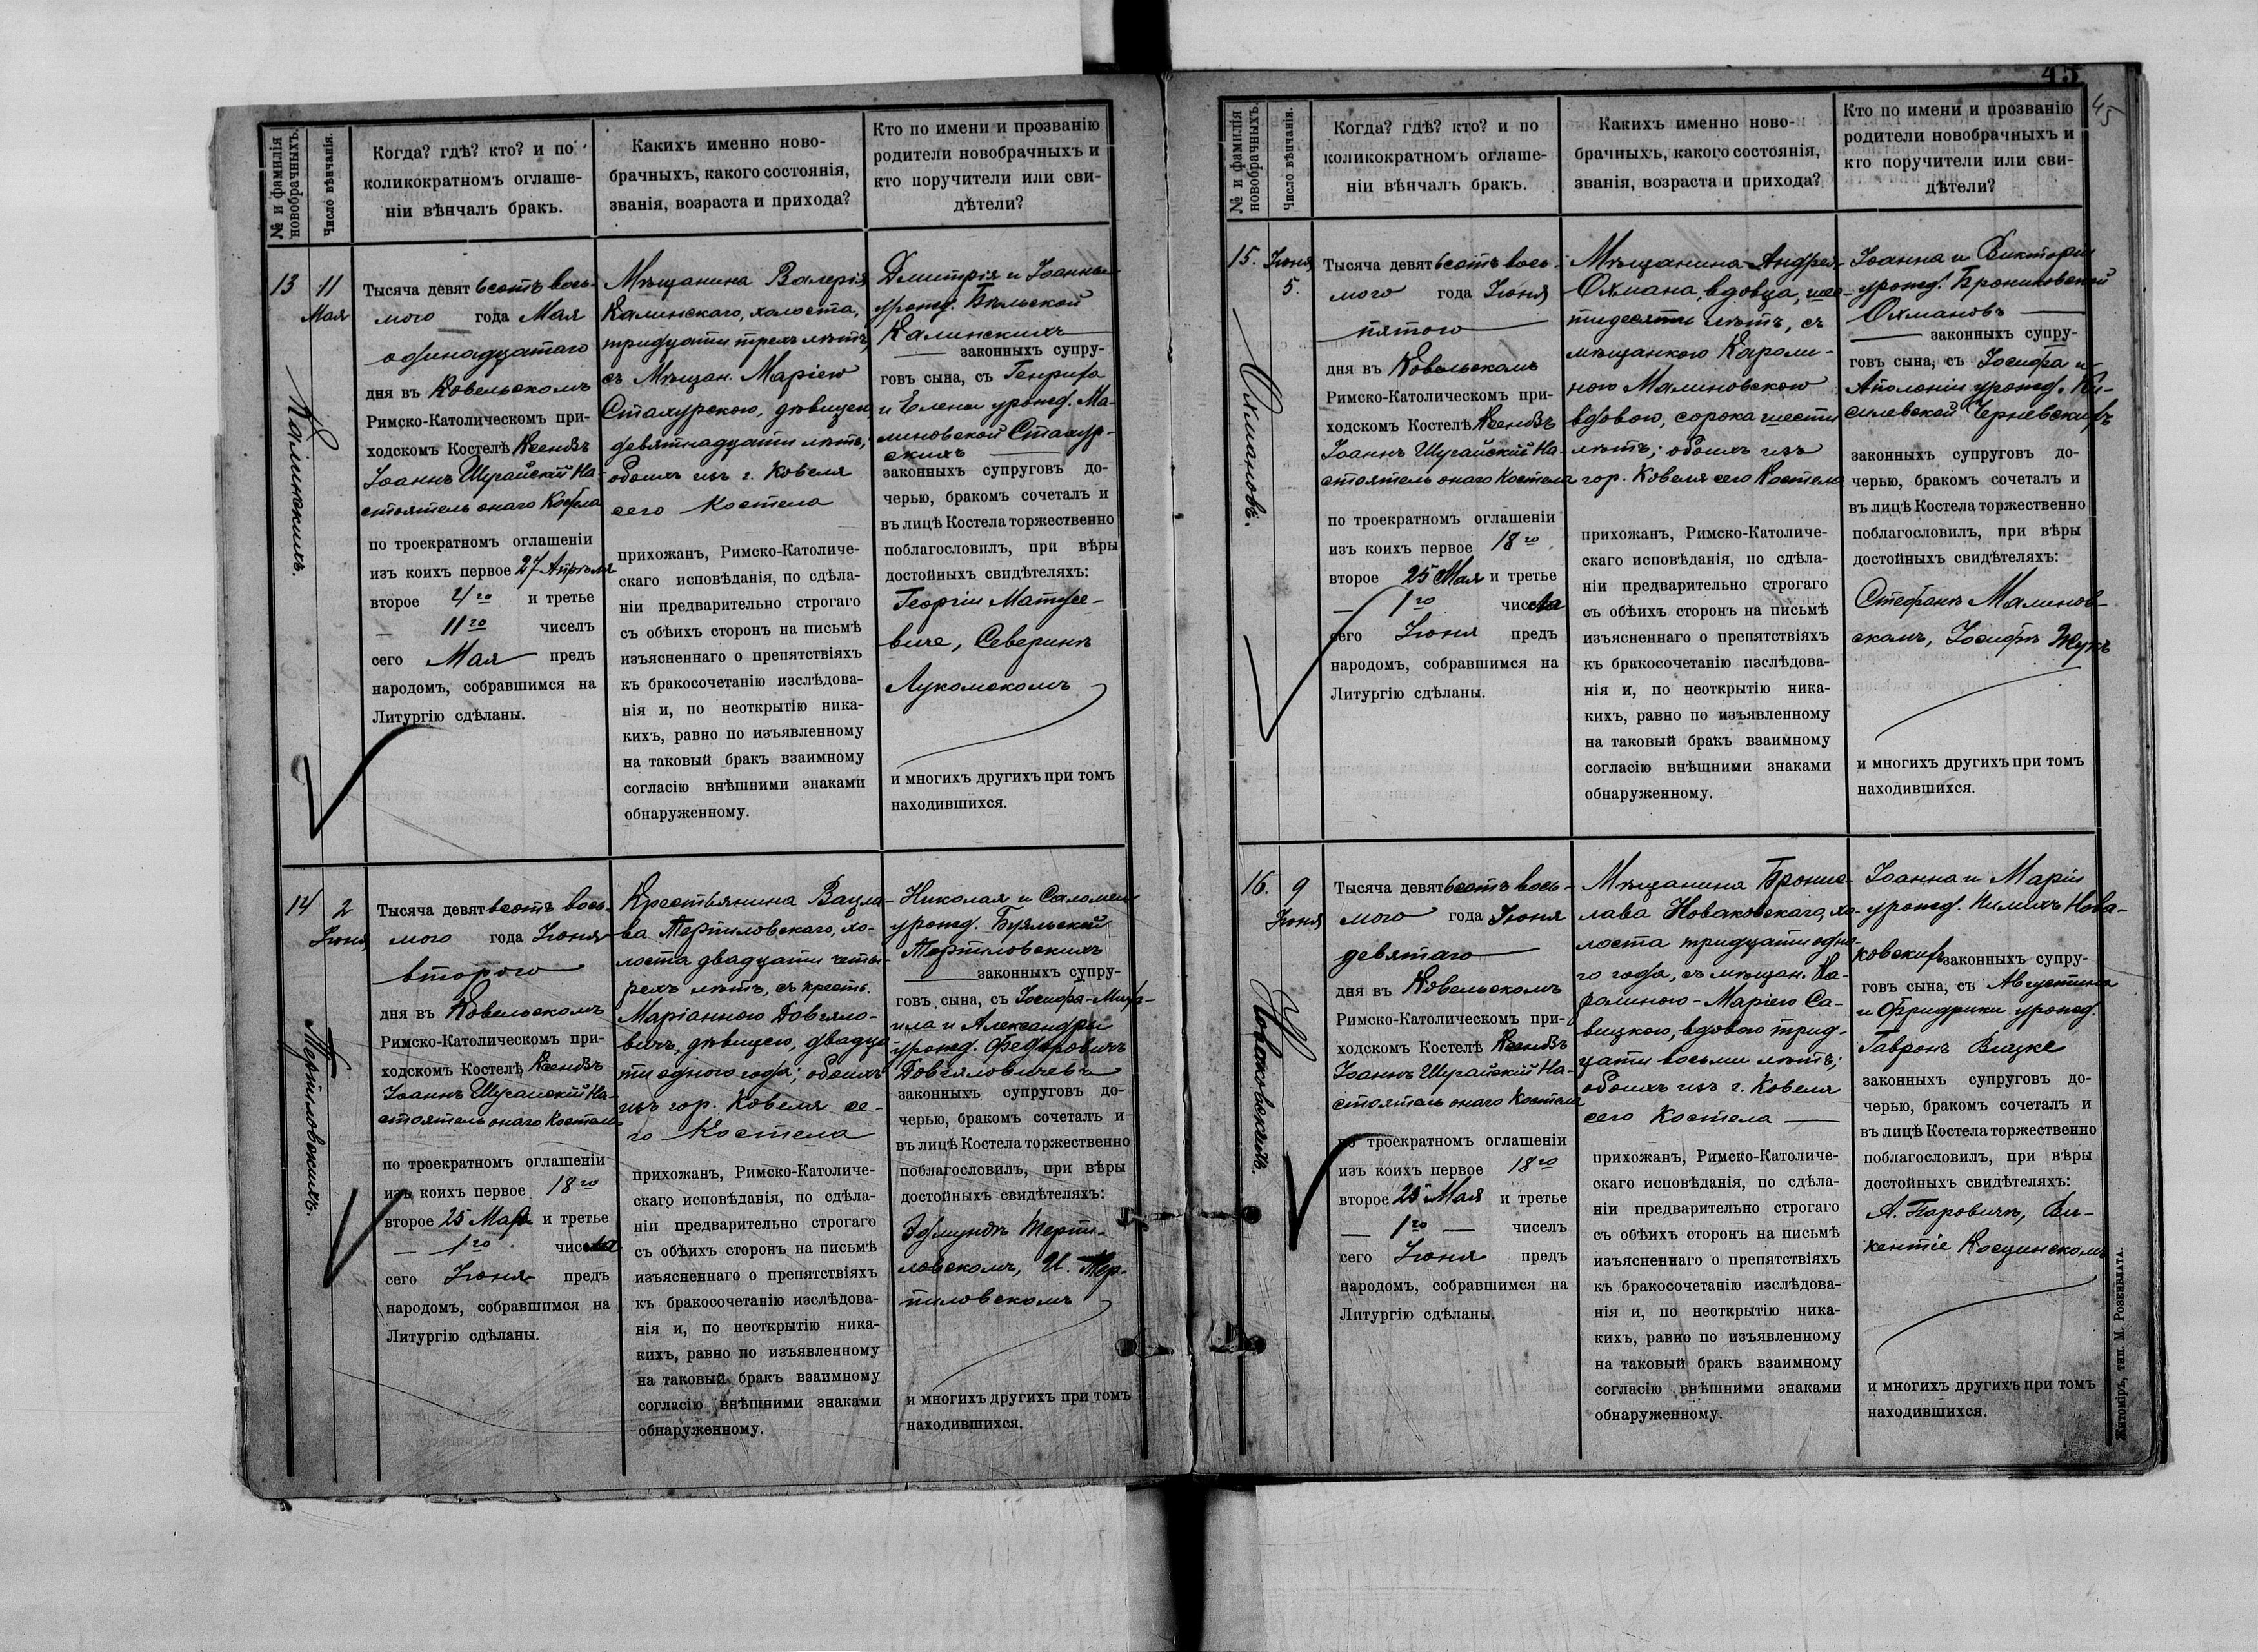 № и фамилія новобрачныхъ.
Число вѣнчанія.
Когда? гдѣ? кто? и по
коликократномъ оглаше-
ніи вѣнчалъ бракъ.
Какихъ именно ново-
брачныхъ, какого состоянія,
званія, возраста и прихода?
Кто по имени и прозванію
родители новобрачныхъ и
кто поручители или сви-
дѣтели?
13
11
Мая
Калинскихъ.
Тысяча девятьсотъ вось-
мого года Мая
одинадцатаго
дня въ Ковельскомъ
Римско-Католическомъ при-
ходскомъ Костелѣ Ксендзъ
Іоаннъ Шугайскій На-
стоятель онаго Костела
по троекратномъ оглашеніи
изъ коихъ первое 27 Апрѣля
второе 4го и третье
11го чиселъ
сего Мая предъ
народомъ, собравшимся на
Литургію сдѣланы.
Мѣщанина Валерія
Калинскаго, холоста,
тридцати трехъ лѣтъ,
съ Мѣщан. Маріею
Стахурскою, дѣвицею
девятнадцати лѣтъ;
обоихъ изъ г. Ковеля
сего Костела
прихожанъ, Римско-Католиче-
скаго исповѣданія, по сдѣла-
ніи предварительно строгаго
съ обѣихъ сторонъ на письмѣ
изъясненнаго о препятствіяхъ
къ бракосочетанію изслѣдова-
нія и, по неоткрытію ника-
кихъ, равно по изъявленному
на таковый бракъ взаимному
согласію внѣшними знаками
обнаруженному.
Дмитрія и Іоанны
урожд. Бѣльской
Калинскихъ
законныхъ супру-
говъ сына, съ Генриха
и Елены урожд. Ма-
линовской Стахур-
скихъ
законныхъ супруговъ до-
черью, бракомъ сочеталъ и
въ лицѣ Костела торжественно
поблагословилъ, при вѣры
достойныхъ свидѣтеляхъ:
Георгіи Матусе-
виче, Северинѣ
Лукомскомъ
и многихъ другихъ при томъ
находившихся.
14
2
Іюня
Тертиловскихъ.
Тысяча девятьсотъ вось-
мого года Іюня
второго
дня въ Ковельскомъ
Римско-Католическомъ при-
ходскомъ Костелѣ Ксендзъ
Іоаннъ Шугайскій На-
стоятель онаго Костела
по троекратномъ оглашеніи
изъ коихъ первое 18го
второе 25 Мая и третье
1го числа
сего Іюня предъ
народомъ, собравшимся на
Литургію сдѣланы.
Крестьянина Вацла-
ва Тертиловскаго, хо-
лоста двадцати четы-
рехъ лѣтъ, съ крестъ.
Маріанною Довгяло-
вичъ, дѣвицею, двадца-
ти одного года; обоихъ
изъ гор. Ковеля се-
го Костела
прихожанъ, Римско-Католиче-
скаго исповѣданія, по сдѣла-
ніи предварительно строгаго
съ обѣихъ сторонъ на письмѣ
изъясненнаго о препятствіяхъ
къ бракосочетанію изслѣдова-
нія и, по неоткрытію ника-
кихъ, равно по изъявленному
на таковый бракъ взаимному
согласію внѣшними знаками
обнаруженному.
Николая и Саломеи
урожд. Буяльской
Тертиловскихъ
законныхъ супру-
говъ сына, съ Іосифа-Миха-
ила и Александры
урожд. Федоровичъ
Довгяловичевъ
законныхъ супруговъ до-
черью, бракомъ сочеталъ и
въ лицѣ Костела торжественно
поблагословилъ, при вѣры
достойныхъ свидѣтеляхъ:
Эдмундѣ Терти-
ловскомъ, И. Тер-
тиловскомъ
и многихъ другихъ при томъ
находившихся.
45
45
№ и фамилія новобрачныхъ.
Число вѣнчанія.
Когда? гдѣ? кто? и по
коликократномъ оглаше-
ніи вѣнчалъ бракъ.
Какихъ именно ново-
брачныхъ, какого состоянія,
званія, возраста и прихода?
Кто по имени и прозванію
родители новобрачныхъ и
кто поручители или сви-
дѣтели?
15.
Іюня
5.
Охмановъ.
Тысяча девятьсотъ вось-
мого года Іюня
пятого
дня въ Ковельскомъ
Римско-Католическомъ при-
ходскомъ Костелѣ Ксендзъ
Іоаннъ Шугайскій На-
стоятель онаго Костела
по троекратномъ оглашеніи
изъ коихъ первое 18го
второе 25 Мая и третье
1го числа
сего Іюня предъ
народомъ, собравшимся на
Литургію сдѣланы.
Мѣщанина Андрея
Охмана, вдовца, шес-
тидесяти лѣтъ, съ
мѣщанкою Кароли-
ною Малиновскою
вдовою, сорока шести
лѣтъ; обоихъ изъ
гор. Ковеля сего Костела
прихожанъ, Римско-Католиче-
скаго исповѣданія, по сдѣла-
ніи предварительно строгаго
съ обѣихъ сторонъ на письмѣ
изъясненнаго о препятствіяхъ
къ бракосочетанію изслѣдова-
нія и, по неоткрытію ника-
кихъ, равно по изъявленному
на таковый бракъ взаимному
согласію внѣшними знаками
обнаруженному.
Іоанна и Викторіи
урожд. Брониковской
Охмановъ
законныхъ супру-
говъ сына, съ Іосифа и
Аполоніи урожд. Ки-
силевской Черневскихъ
законныхъ супруговъ до-
черью, бракомъ сочеталъ и
въ лицѣ Костела торжественно
поблагословилъ, при вѣры
достойныхъ свидѣтеляхъ:
Стефанѣ Малинов-
скомъ, Іосифѣ Жукъ
и многихъ другихъ при томъ
находившихся.
16.
9
Іюня
Новаковскихъ.
Тысяча девятьсотъ вось-
мого года Іюня
девятаго
дня въ Ковельскомъ
Римско-Католическомъ при-
ходскомъ Костелѣ Ксендзъ
Іоаннъ Шугайскій На-
стоятель онаго Костела
по троекратномъ оглашеніи
изъ коихъ первое 18го
второе 25 Мая и третье
1го чиселъ
сего Іюня предъ
народомъ, собравшимся на
Литургію сдѣланы.
Мѣщанина Брони-
лава Новаковскаго, хо-
лоста тридцати одно-
го года, съ мѣщан. Ка-
ролиною-Маріею Са-
вицкою, вдовою трид-
цати восьми лѣтъ;
обоихъ изъ г. Ковеля
сего Костела
прихожанъ, Римско-Католиче-
скаго исповѣданія, по сдѣла-
ніи предварительно строгаго
съ обѣихъ сторонъ на письмѣ
изъясненнаго о препятствіяхъ
къ бракосочетанію изслѣдова-
нія и, по неоткрытію ника-
кихъ, равно по изъявленному
на таковый бракъ взаимному
согласію внѣшними знаками
обнаруженному.
Іоанна и Маріи
урожд. Нова-
ковскихъ законныхъ супру-
говъ сына, съ Августина
и Фридрики урожд.
Гавронъ
законныхъ супруговъ до-
черью, бракомъ сочеталъ и
въ лицѣ Костела торжественно
поблагословилъ, при вѣры
достойныхъ свидѣтеляхъ:
А. Паровичъ, Ви-
кентіе Косцинскомъ
и многихъ другихъ при томъ
находившихся.
Житоміръ, тип. М. Розенблата.